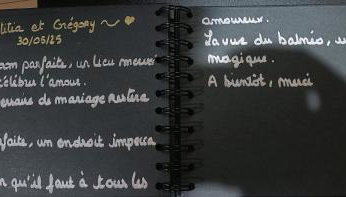 litia et Grégory ~ ♥
30/05/25
parfaite, un lieu
célèbrer l'amour.
de mariage Restera
faite, un endroit
qu'il faut à tous les
amoureux.
La vue du balnéo,
magique.
A bientôt, merci